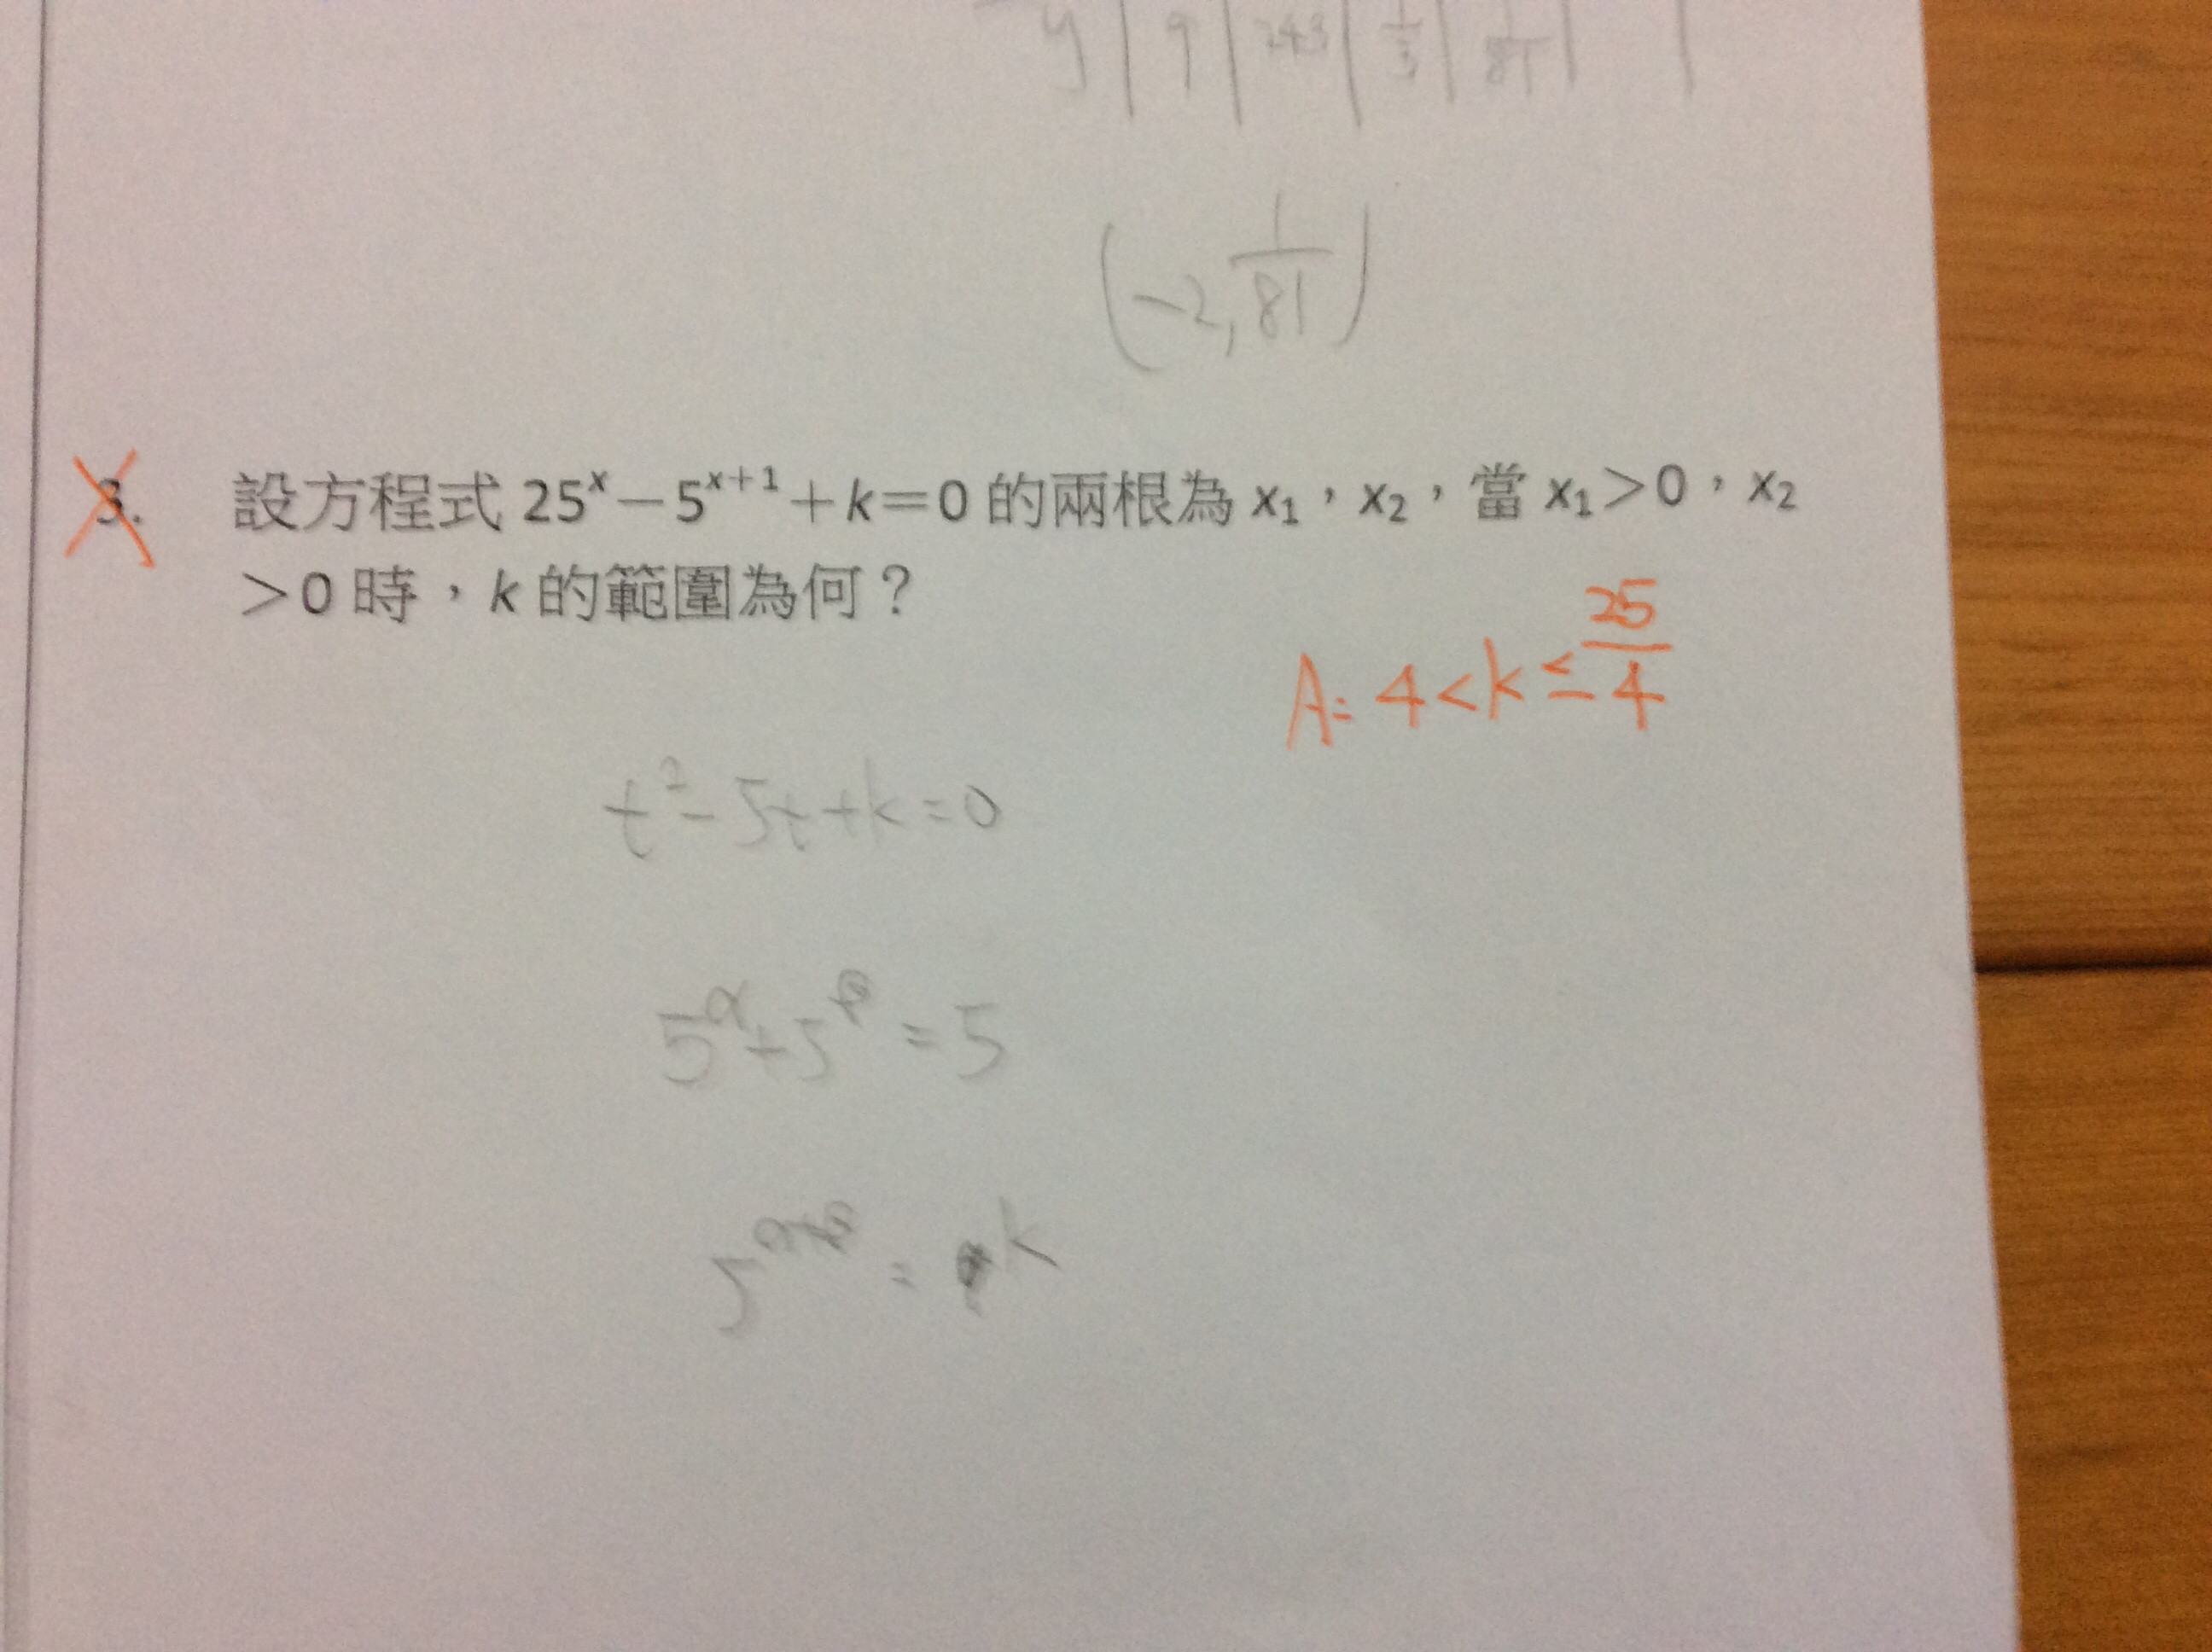 y | 9 | 243 | 1/3 | 1/81 |
(-2, 1/81)
3. 設方程式 25^x－5^(x+1)＋k＝0 的兩根為 x₁，x₂，當 x₁＞0，x₂
＞0 時，k 的範圍為何？
A: 4 < k ≤ 25/4
t² - 5t + k = 0
5^α + 5^β = 5
5^(α+β) = k